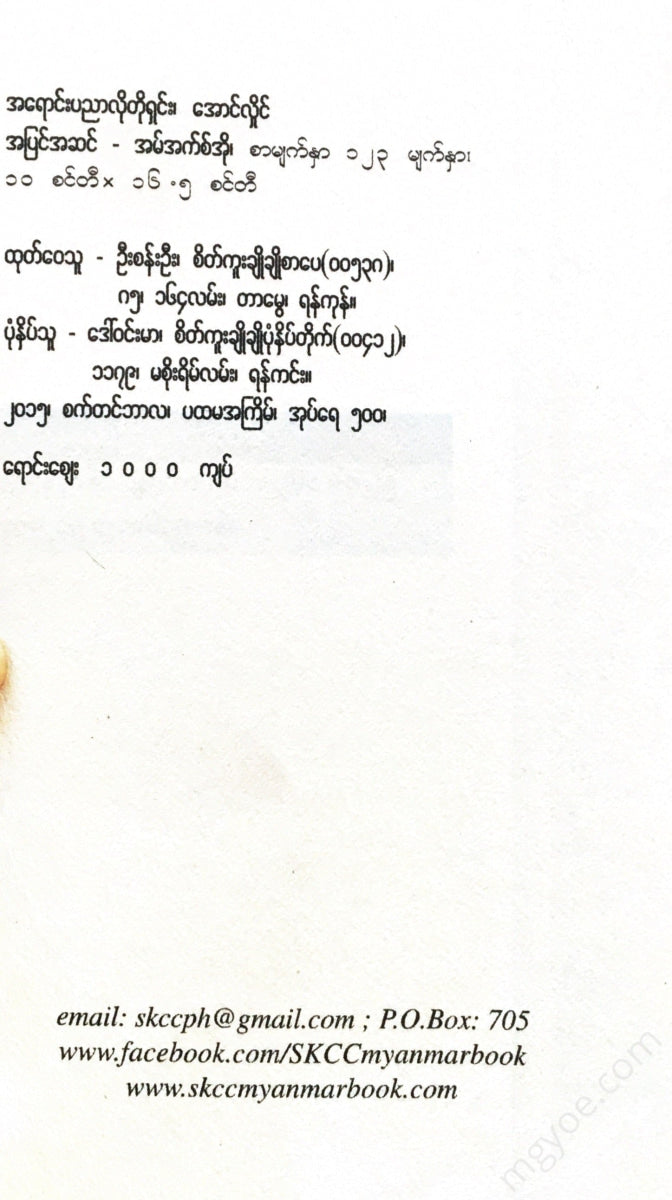 အရောင်းပညာလိုတိုရှင်း၊ အောင်လှိုင်
အပြင်အဆင် - အမ်အက်စ်အို၊ စာမျက်နှာ ၁၂၃ မျက်နှာ၊
၁၀ စင်တီ× ၁၆.၅ စင်တီ
ထုတ်ဝေသူ - ဦးစန်းဦး၊ စိတ်ကူးချိုချိုစာပေ(၀၀၅၃၈)၊
၈၅၊ ၁၆၄လမ်း၊ တာမွေ၊ ရန်ကုန်။
ပုံနှိပ်သူ - ဒေါ်ဝင်းမာ၊ စိတ်ကူးချိုချိုပုံနှိပ်တိုက်(၀၀၄၁၂)၊
၁၁၇၉၊ မစိုးရိမ်လမ်း၊ ရန်ကင်း။
၂၀၁၅၊ စက်တင်ဘာလ၊ ပထမအကြိမ်၊ အုပ်ရေ ၅၀၀၊
ရောင်းဈေး ၁ ၀ ၀ ၀ ကျပ်
email: skccph@gmail.com ; P.O.Box: 705
www.facebook.com/SKCCmyanmarbook
www.skccmyanmarbook.com
mgyoe.com